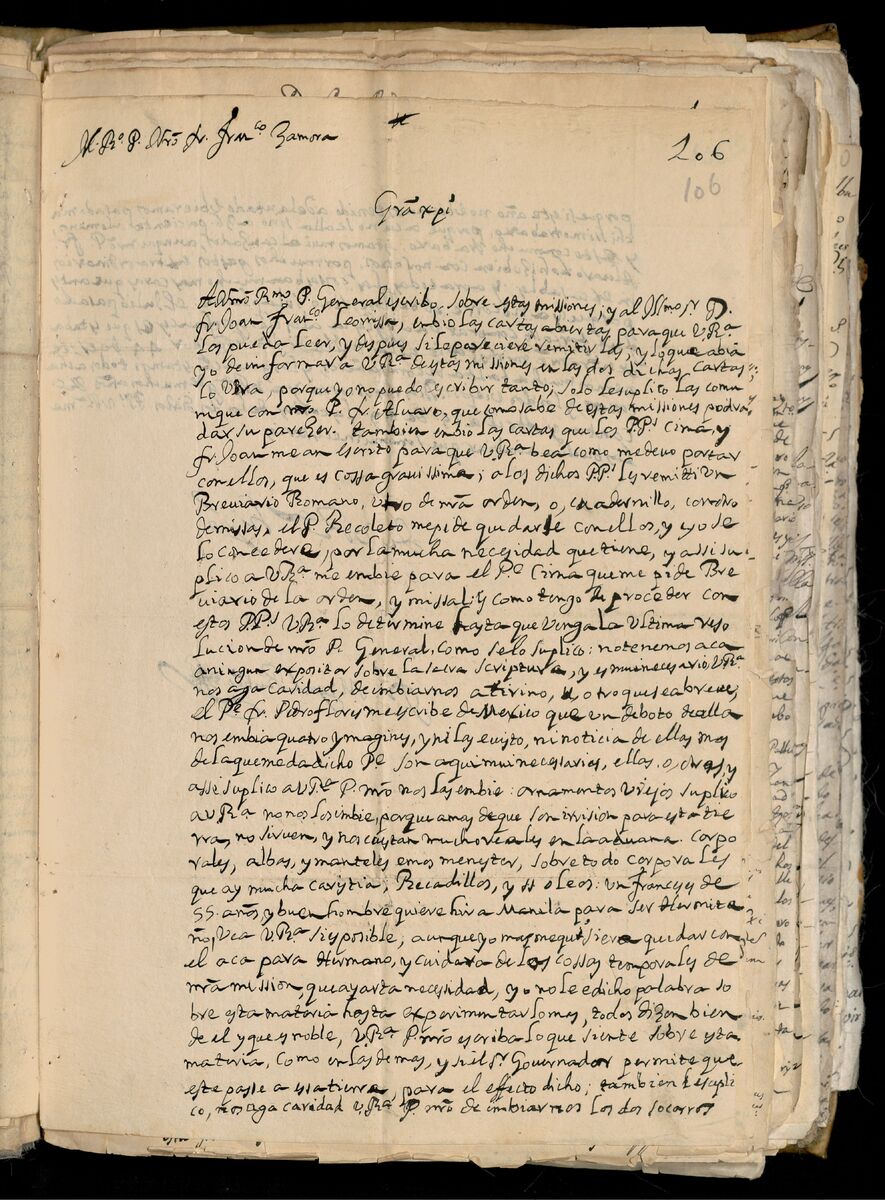 M. Rdo. P. Nro. fr. Franco Zamora
106
106
Gra. xpi
A Nro Rmo P. General escribo sobre estas missiones, y al Illmo Sr D.
fr. Joan Franco Leonissa, enbio las cartas abiertas para que V. Ra
los pueda leer, y despues si le pareciere remitirlas, y lo que abia
yo de informar a V. Ra de estas missiones en las dos dichas cartas
lo vera, porque yo no puedo escribir tanto; solo le suplico las comu
nique con nro P. fr. Aluaro, que como sabe de estas missiones podra
dar su parezer. tambien enbio las cartas que los PPs Cima, y
fr. Joan me an escrito para que V. Ra bea como me devo portar
con ellos, que es cossa grauissima; a los dichos PPs les remitti un
Breviario Romano, uno de nra orden, o, cuadernillo, con otro
de missas, el P. Recoleto me pide quedarse con ellos, y yo se
lo concedere, por la mucha necesidad que tiene, y assi su
plico a V. Ra me embie para el Pe Cima que me pide Bre
viario de la orden, y missalis como tengo de proceder con
estos PPs V. Ra lo determine hasta que venga la ultima reso
lucion de nro P. General, como se lo suplico: no tenemos aca
aningun expositor sobre la sacra scriptura, y es mui necesario, V. Ra
nos aga caridad, de imbiarnos a tirino, u, otro que sea breve,
el Pe fr. Pedro flores me escribe de Mexico que un deboto de alla
nos embia quatro ymagines, y ni las e visto, ni noticia de ellas mas
de la que me da dicho Pe son aqui mui necessarias, ellas, o, otras, y
assi suplico a V. Ra P. nro nos las embie: ornamentos viejos suplico
a V. Ra no nos los imbie, porque amas de que son irrision para esta tie
rra, no sirven, y nos cuestan muchos reales en la aduana. Corpo
rales, albas, y manteles emos menester, sobre todo corporales
que ay muncha caristia, Recadillos, y Stos oleos: un frances de
55. años y buen hombre quiere hir a Manila para ser Hermita
ño, vea V. Ra si es posible, aunque yo mas me quisiera quedar con
el aca para Hermano, y cuidara de las cossas temporales de
nra mission, que ay arta necessidad, y no le e dicho palabra so
bre esta materia hasta experimentarlo mas, todos dizen bien
de el y que es noble, V. Ra P. nro escriba lo que siente sobre esta
materia, como en las demas, y si el Sr Governador permite que
este passe a essa tierra, para el effecto dicho; tambien le supli
co, nos aga caridad V. Ra P. nro de imbiarnos los dos socorros